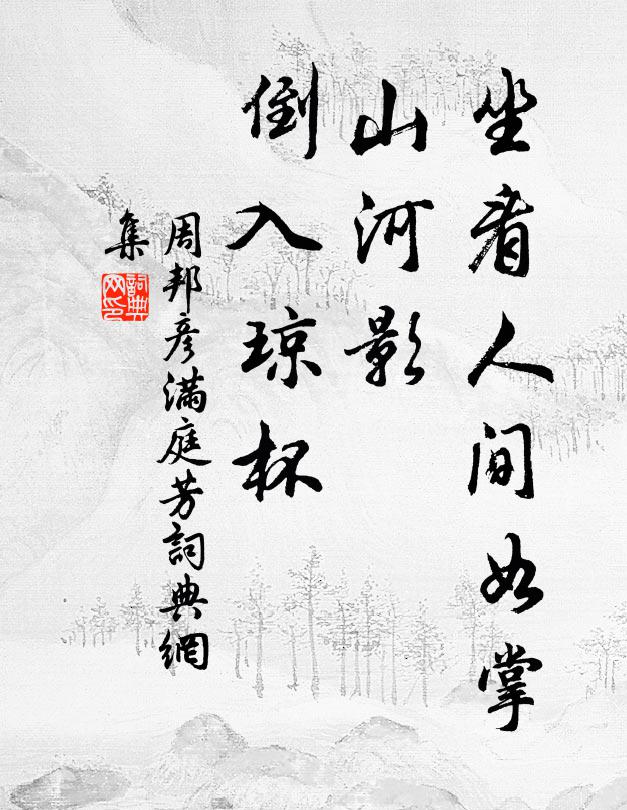 坐看人间如掌
山河影
倒入琼杯
周邦彦满庭芳詞典網
集
詞典
网印